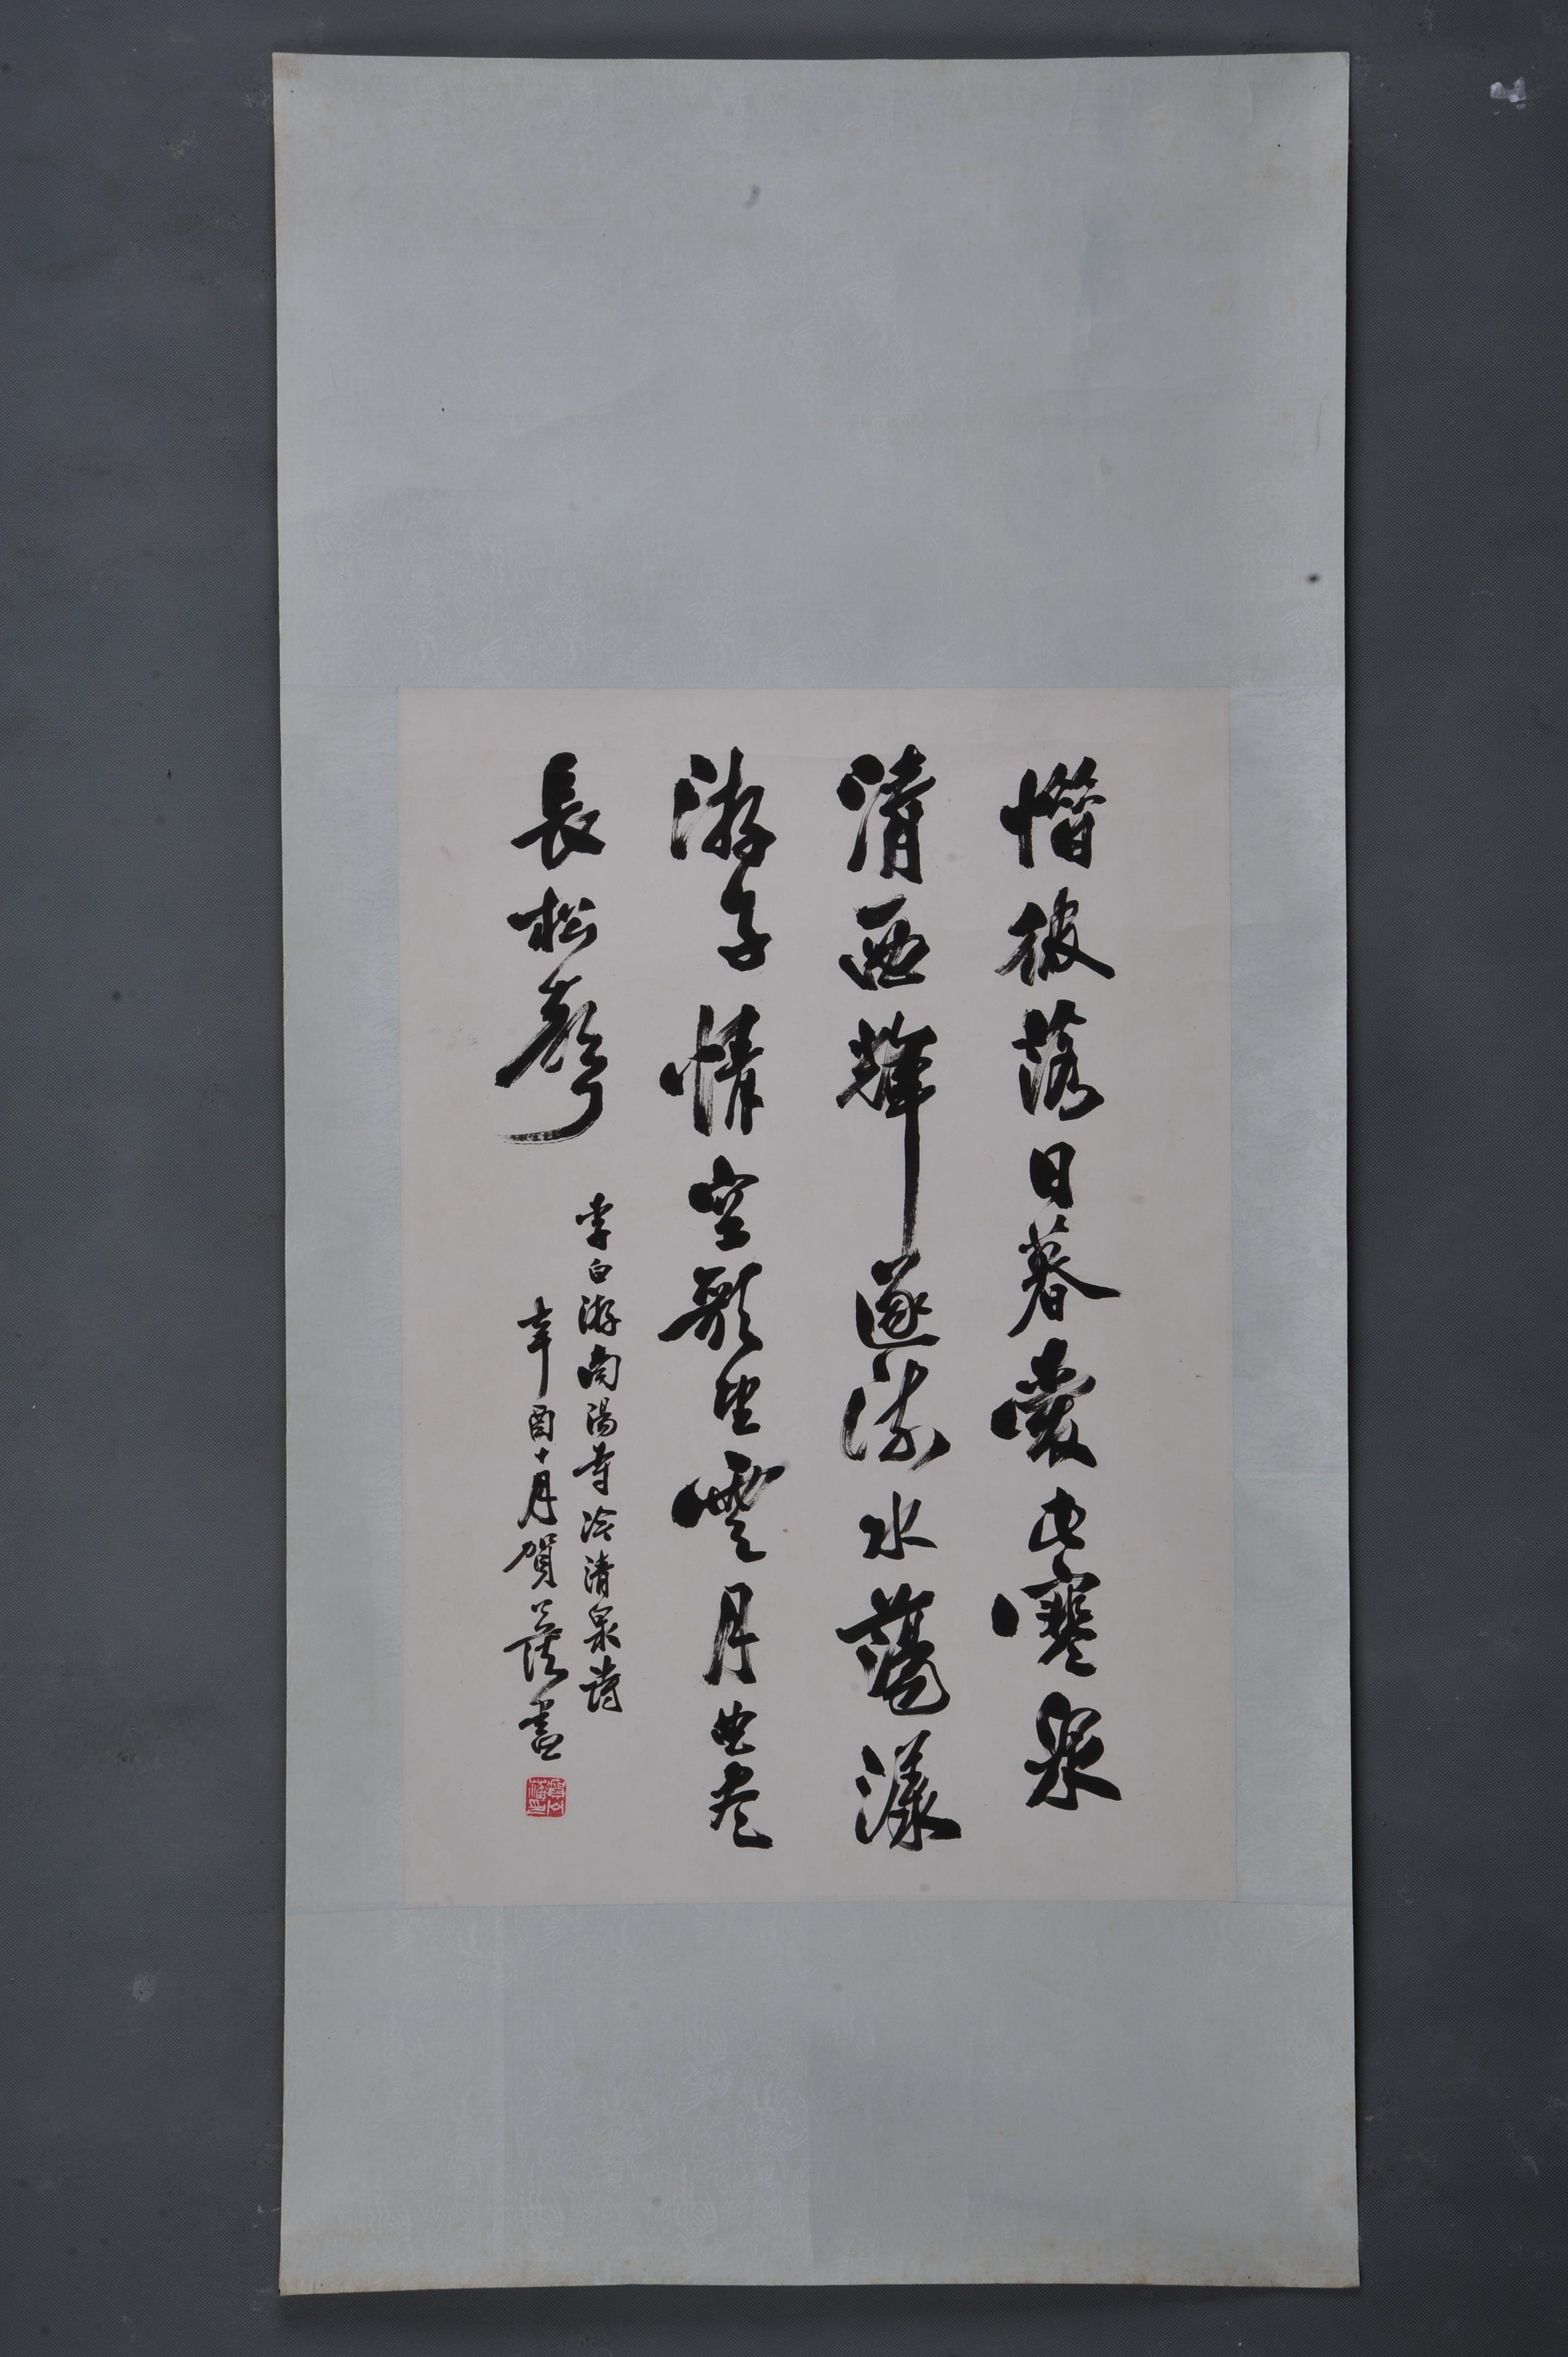 惜彼落日暮愛此寒泉
清西輝逐流水蕩漾
游子情空歌望雲月曲盡
長松聲
李白游南陽寺冷清泉詩
辛酉十月賀蔭書